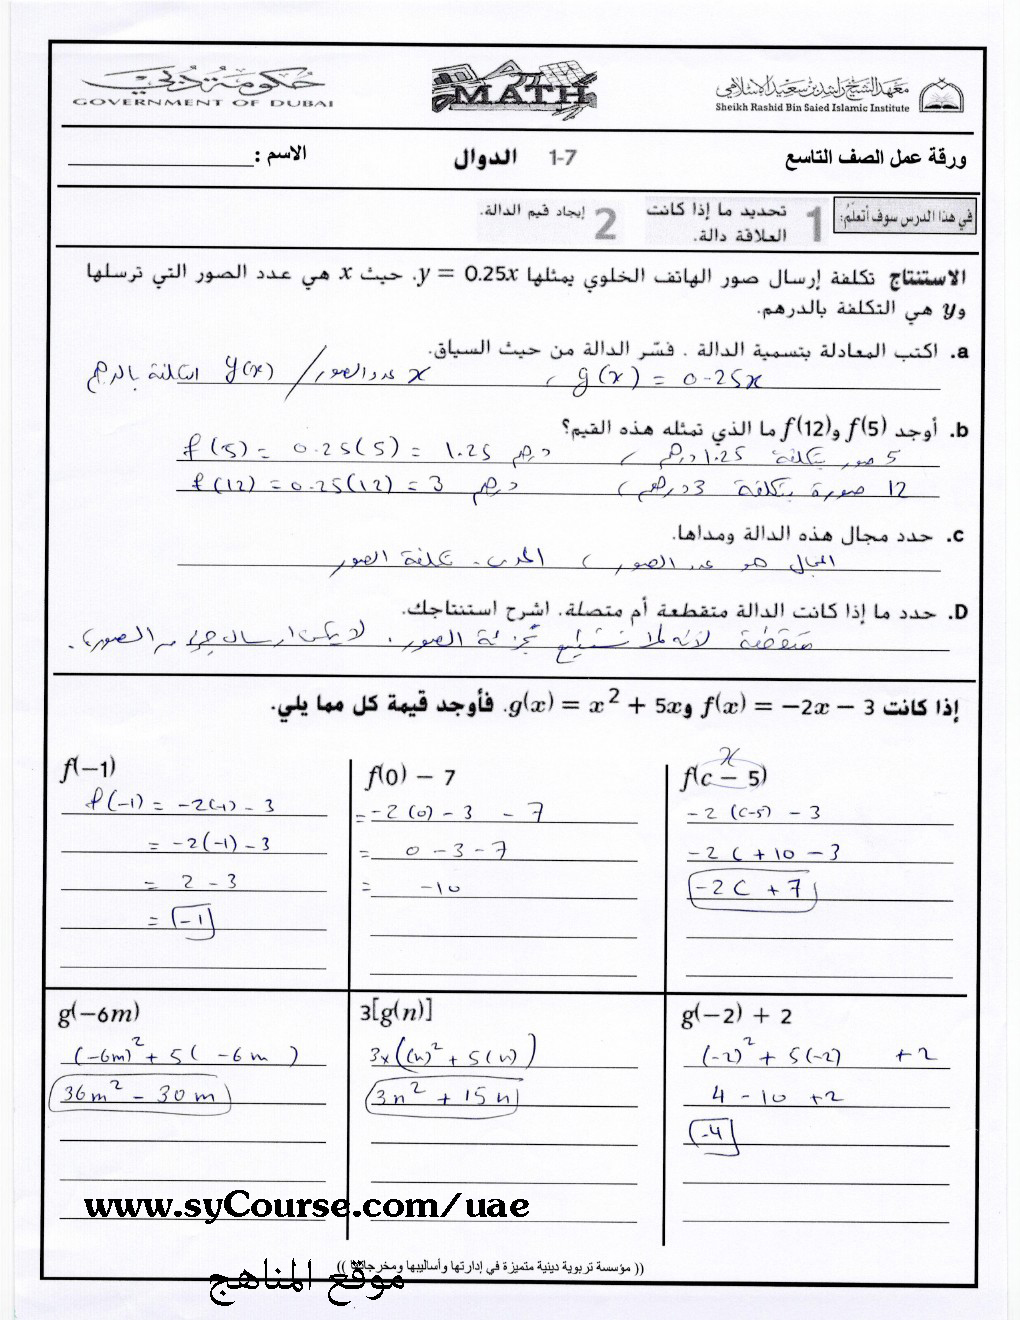 حكومة دبي
GOVERNMENT OF DUBAI
MATH
معهد الشيخ راشد بن سعيد الإسلامي
Sheikh Rashid Bin Saied Islamic Institute
ورقة عمل الصف التاسع
1-7 الدوال
الاسم :
في هذا الدرس سوف أتعلّم:
1 تحديد ما إذا كانت العلاقة دالة.
2 إيجاد قيم الدالة.
الاستنتاج تكلفة إرسال صور الهاتف الخلوي يمثلها y = 0.25x. حيث x هي عدد الصور التي ترسلها
وy هي التكلفة بالدرهم.
a. اكتب المعادلة بتسمية الدالة . فسّر الدالة من حيث السياق.
g(x) = 0.25x , x عدد الصور / y(x) التكلفة بالدرهم
b. أوجد f(5) وf(12) ما الذي تمثله هذه القيم؟
f(5) = 0.25(5) = 1.25 درهم , 5 صور بتكلفة 1.25 درهم
f(12) = 0.25(12) = 3 درهم , 12 صورة بتكلفة 3 درهم
c. حدد مجال هذه الدالة ومداها.
المجال هو عدد الصور , المدى تكلفة الصور
D. حدد ما إذا كانت الدالة متقطعة أم متصلة. اشرح استنتاجك.
متقطعة لأنه لا نستطيع تجزئة الصور. لا يمكن ارسال جزء من الصورة.
إذا كانت f(x) = −2x − 3 وg(x) = x² + 5x. فأوجد قيمة كل مما يلي.
f(−1)
f(-1) = -2(-1) - 3
= -2(-1) - 3
= 2 - 3
= -1
f(0) − 7
= -2(0) - 3 - 7
= 0 - 3 - 7
= -10
x
f(c − 5)
-2(c-5) - 3
-2c + 10 - 3
-2c + 7
g(−6m)
(-6m)² + 5(-6m)
36m² - 30m
3[g(n)]
3×((n)² + 5(n))
3n² + 15n
g(−2) + 2
(-2)² + 5(-2) + 2
4 - 10 + 2
-4
www.syCourse.com/uae
(( مؤسسة تربوية دينية متميزة في إدارتها وأساليبها ومخرجاتها ))
موقع المناهج